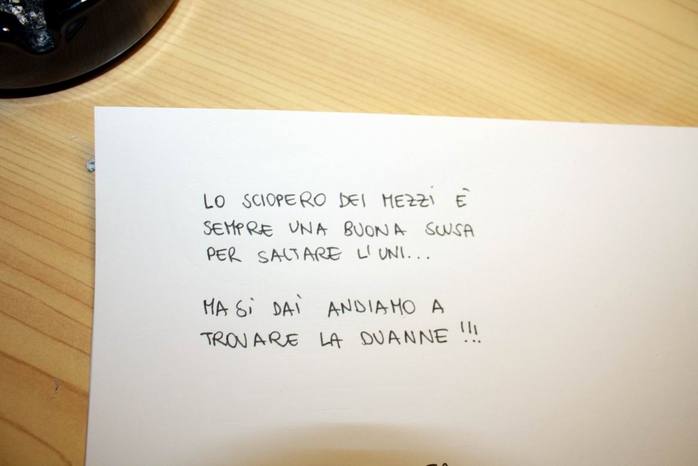 LO SCIOPERO DEI MEZZI È
SEMPRE UNA BUONA SCUSA
PER SALTARE L'UNI...
MA SI DAI ANDIAMO A
TROVARE LA DUANNE !!!